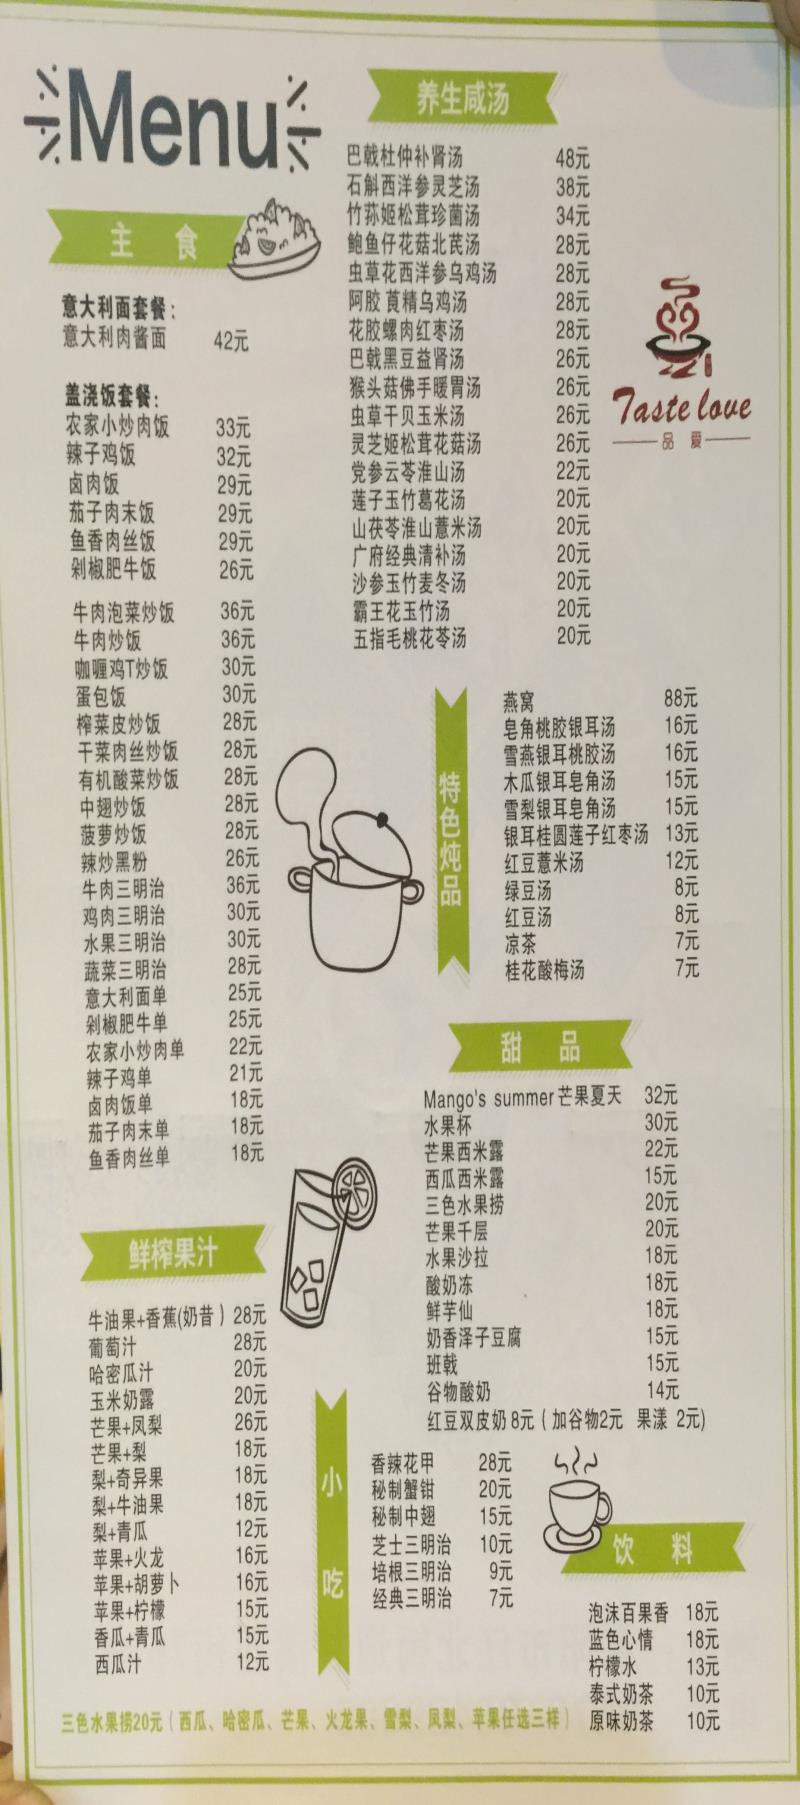 Menu
主 食
意大利面套餐：
意大利肉酱面 42元
盖浇饭套餐：
农家小炒肉饭 33元
辣子鸡饭 32元
卤肉饭 29元
茄子肉末饭 29元
鱼香肉丝饭 29元
剁椒肥牛饭 26元
牛肉泡菜炒饭 36元
牛肉炒饭 36元
咖喱鸡T炒饭 30元
蛋包饭 30元
榨菜皮炒饭 28元
干菜肉丝炒饭 28元
有机酸菜炒饭 28元
中翅炒饭 28元
菠萝炒饭 28元
辣炒黑粉 26元
牛肉三明治 36元
鸡肉三明治 30元
水果三明治 30元
蔬菜三明治 28元
意大利面单 25元
剁椒肥牛单 25元
农家小炒肉单 22元
辣子鸡单 21元
卤肉饭单 18元
茄子肉末单 18元
鱼香肉丝单 18元
鲜榨果汁
牛油果+香蕉(奶昔) 28元
葡萄汁 28元
哈密瓜汁 20元
玉米奶露 20元
芒果+凤梨 26元
芒果+梨 18元
梨+奇异果 18元
梨+牛油果 18元
梨+青瓜 12元
苹果+火龙 16元
苹果+胡萝卜 16元
苹果+柠檬 15元
香瓜+青瓜 15元
西瓜汁 12元
养生咸汤
巴戟杜仲补肾汤 48元
石斛西洋参灵芝汤 38元
竹荪姬松茸珍菌汤 34元
鲍鱼仔花菇北芪汤 28元
虫草花西洋参乌鸡汤 28元
阿胶 莨精乌鸡汤 28元
花胶螺肉红枣汤 28元
巴戟黑豆益肾汤 26元
猴头菇佛手暖胃汤 26元
虫草干贝玉米汤 26元
灵芝姬松茸花菇汤 26元
党参云苓淮山汤 22元
莲子玉竹葛花汤 20元
山茯苓淮山薏米汤 20元
广府经典清补汤 20元
沙参玉竹麦冬汤 20元
霸王花玉竹汤 20元
五指毛桃花苓汤 20元
Taste love
品 爱
特色炖品
燕窝 88元
皂角桃胶银耳汤 16元
雪燕银耳桃胶汤 16元
木瓜银耳皂角汤 15元
雪梨银耳皂角汤 15元
银耳桂圆莲子红枣汤 13元
红豆薏米汤 12元
绿豆汤 8元
红豆汤 8元
凉茶 7元
桂花酸梅汤 7元
甜 品
Mango's summer 芒果夏天 32元
水果杯 30元
芒果西米露 22元
西瓜西米露 15元
三色水果捞 20元
芒果千层 20元
水果沙拉 18元
酸奶冻 18元
鲜芋仙 18元
奶香泽子豆腐 15元
班戟 15元
谷物酸奶 14元
红豆双皮奶 8元（加谷物2元 果漾 2元)
小吃
香辣花甲 28元
秘制蟹钳 20元
秘制中翅 15元
芝士三明治 10元
培根三明治 9元
经典三明治 7元
饮 料
泡沫百果香 18元
蓝色心情 18元
柠檬水 13元
泰式奶茶 10元
原味奶茶 10元
三色水果捞20元（西瓜、哈密瓜、芒果、火龙果、雪梨、凤梨、苹果任选三样）